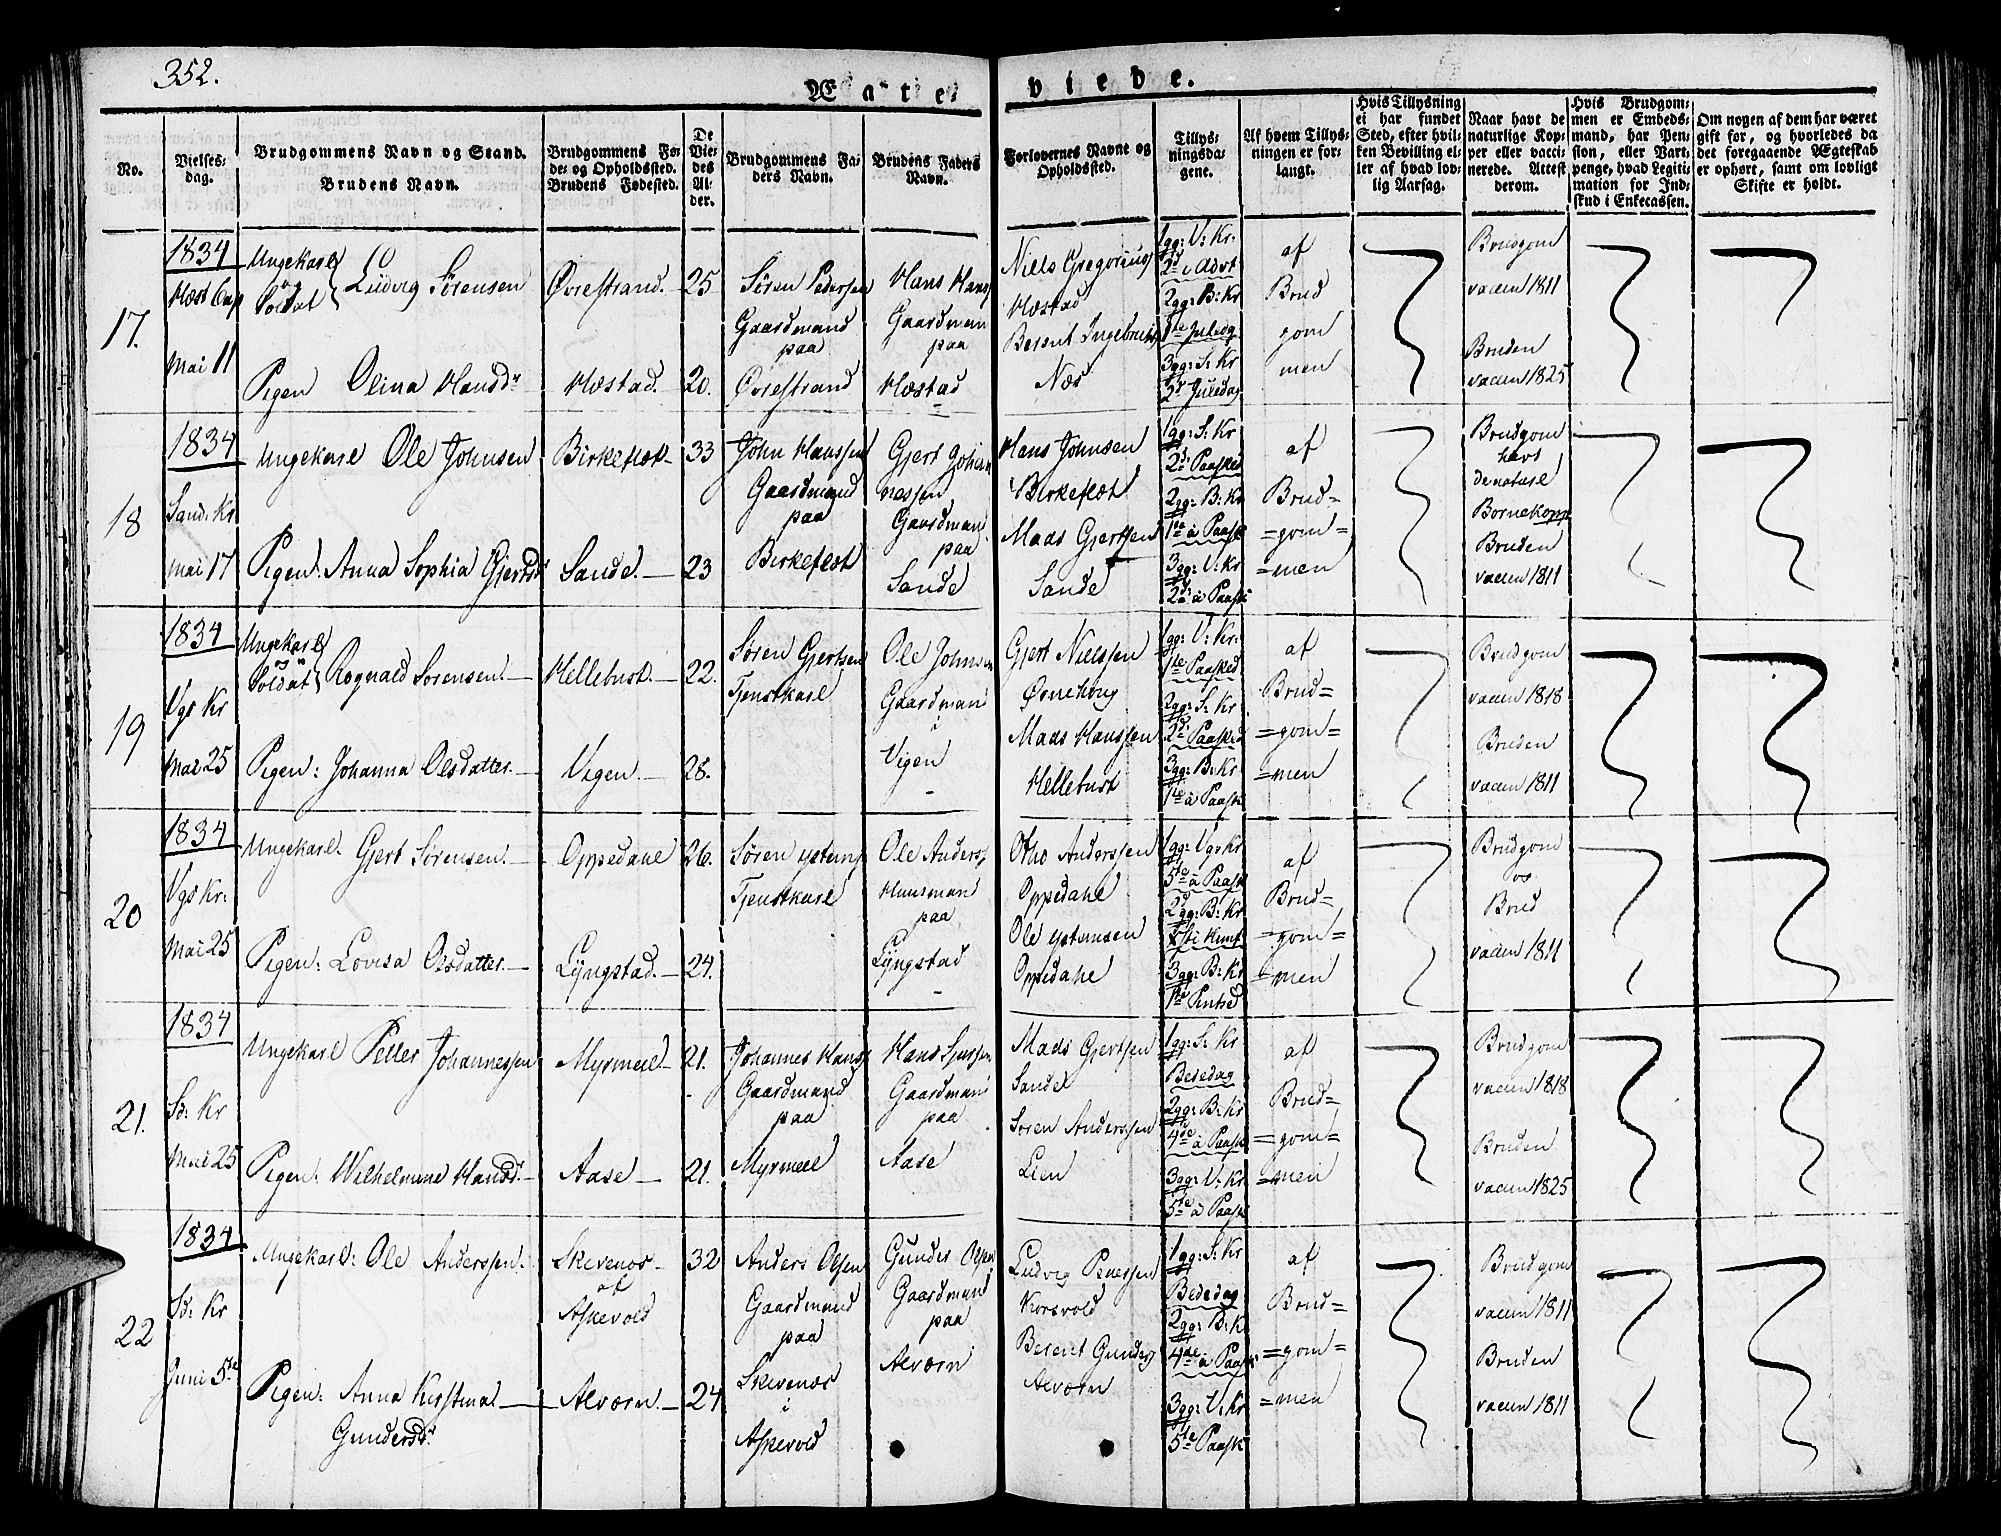 352.
Ægte-
viede.
No.
Vielses-
dag.
Brudgommens Navn og Stand.
Brudens Navn.
Brudgommens Fø-
de- og Opholdssted.
Brudens Fødested.
De
Vie-
des
Al-
der.
Brudgommens Fa-
ders Navn.
Brudens Faders
Navn.
Forlovernes Navne og
Opholdssted.
Tillys-
ningsda-
gene.
Af hvem Tillys-
ningen er for-
langt.
Hvis Tillysning
ei har fundet
Sted, efter hvil-
ken Bevilling el-
ler af hvad lov-
lig Aarsag.
Naar havt de
naturlige Kop-
per eller vacci-
nerede. Attest
derom.
Hvis Brudgom-
men er Embeds-
mand, har Pen-
sion, eller Vart-
penge, hvad Legiti-
mation for Ind-
skud i Enkecassen.
Om nogen af dem har været
gift før, og hvorledes da
det foregaaende Ægteskab
er ophørt, samt om lovligt
Skifte er holdt.
17.
1834
Mai 11
Ungekarl
og
Soldat
Ludvig Sørensen
Pigen Olina Hansdr
Øvrestrand.
Hæstad.
25
20.
Søren Pedersen
Gaardmand
paa
Øvrestrand
Hans Hans
Gaardman
paa
Hæstad
Niels Gregorius
Hæstad
Berent Ingebrigts
Næs
1gg: V: Kr:
2d i Advt
2gg: B: Kr
1te Juledg
3gg: S: Kr
2d Juledag
af
Brud
gom
men
Brudgom
vaccin 1811
Bruden
vaccin 1825
18
1834
Sand: Kr
Mai 17
Ungekarl Ole Johnsen
Pigen: Anna Sophia Gjertsd
Birkeflot
Sande.
33
23
John Hanssen
Gaardmand
paa
Birkeflot
Gjert Johan
nessen
Gaardman
paa
Sande
Hans Johnsen
Birkeflot
Mads Gjertsen
Sande
1gg: S: Kr
2d Paasked
2gg: B: Kr
1te à Paask
3gg: V: Kr
2d à Paask
af
Brud=
=gom=
=men
Brudgom
havt
de naturl
Bornekopp
Bruden
vaccin 1811
19
1834
Vgs Kr
Mai 25
Ungekarl
og
Soldat
Rognald Sorensen.
Pigen: Johanna Olsdatter.
Hellebust.
Vigen.
22.
28.
Søren Gjertsen
Tjenstkarl
Ole Johnsen
Gaardman
i
Vigen
Gjert Nielssen
Mads Hanssen
Hellebust
1gg: V: Kr:
1te Paasked
2gg: S: Kr
2d Paasked
3gg: B: Kr
1te à Paask
af
Brud=
=gom=
=men
Brudgom
vaccin 1818
Bruden
vaccin 1811
20
1834
Vgs Kr:
Mai 25
Ungekarl. Gjert Sørensen.
Pigen: Lovisa Olsdatter.
Oppedahl
Lyngstad.
26.
24.
Søren
Tjenstkarl
Ole Anders
Huusman
paa
Lyngstad
Otho Anderssen
Oppedahl
Ole
Oppedahl
1gg: Vgs Kr
5te à Paask
2gg: B: Kr
3gg: B: Kr
1te Pintsed
af
Brud=
=gom=
=men
Brudgom
og
Brud
vaccin 1811
21.
1834
B: Kr
Mai 25
Ungekarl Petter Johannessen
Pigen: Wilhelmine Hansd
Myrmeel
Aase
21.
21.
Johannes Hans
Gaardmand
paa
Myrmeel
Hans
Gaardman
paa
Aase
Mads Gjertsen
Sande
Soren Anderssen
Lien
1gg: S: Kr
Bededag
2gg: B: Kr
4de à Paask
3gg: V: Kr
5te à Paask
af
Brud=
=gom=
=men
Brudgom
vaccin 1818
Bruden
vaccin 1825
22
1834
B: Kr
Juni 5te
Ungekarl: Ole Anderssen.
Pigen: Anna Kirstina
Gundersd.
Skevenes
af
Askevold
Alvorn.
32
24
Anders Olsen
Gaardmand
paa
Skevenes
i
Askevold
Gunder Olsen
Gaardmand
paa
Alvorn
Ludvig
Korsvold
Berent Gunders
Alvorn
1gg: S: Kr
Bededag
2gg: B: K
4de à Paask
3gg: V: Kr
5te Paask
af
Brud=
=gom=
=men
Brudgom
vaccin 1811
Bruden
vaccin 1811